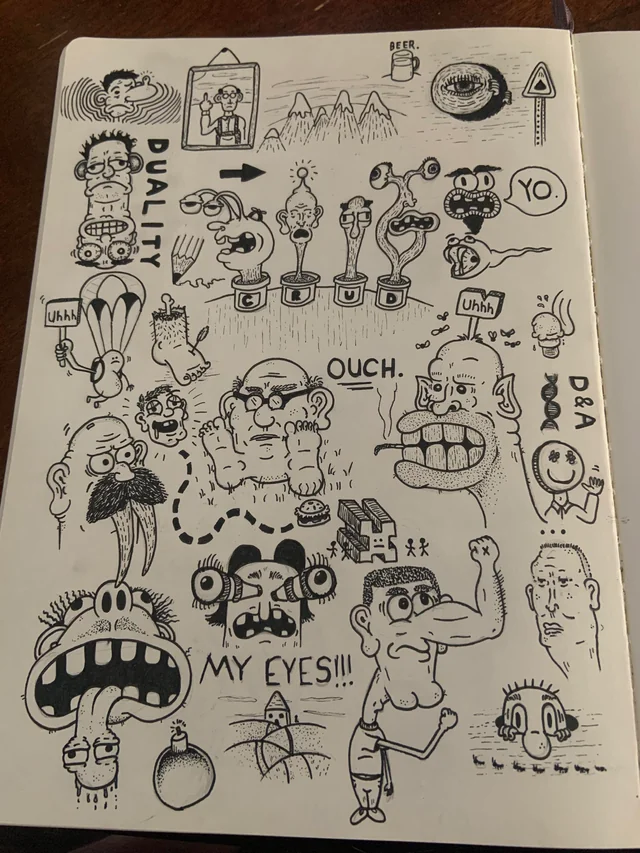 BEER.
DUALITY
YO.
C R U D
Uhhh
Uhhh
OUCH.
D&A
MY EYES!!!